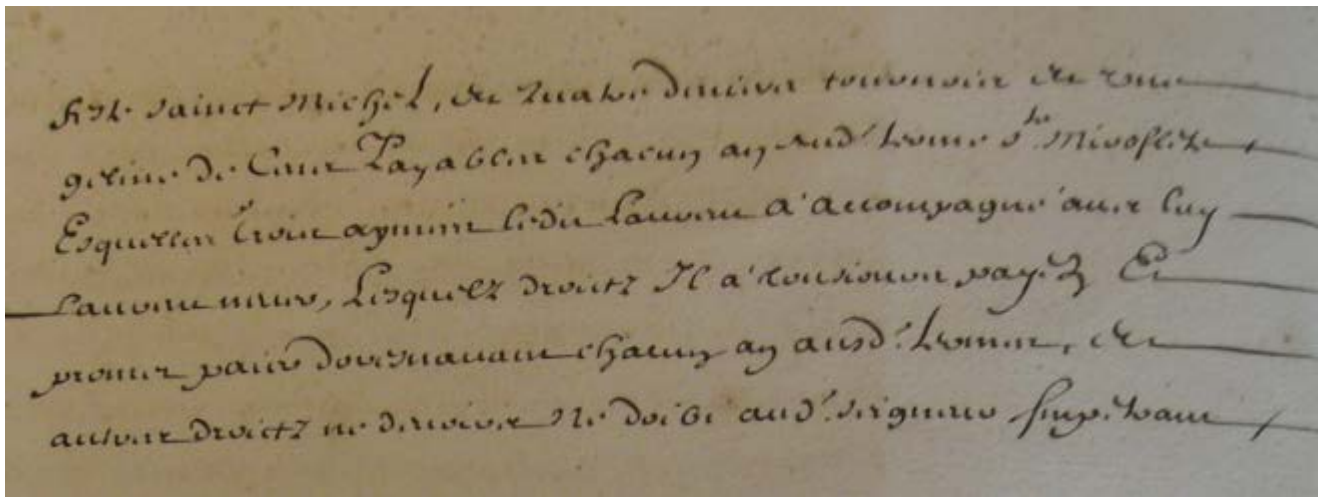 sainct Michel, de quatre deniers tournois et une
geline de Cens Payables chacun an aud.' terme
Esquelles trois ledit a accompagné avec luy
Lesquelz droictz Il a tousiours payéz Et
promet paier doresnavant chacun an ausd.' termes, et
autres droictz ne devoirs Ne doibt aud.' seigneur Impetrant